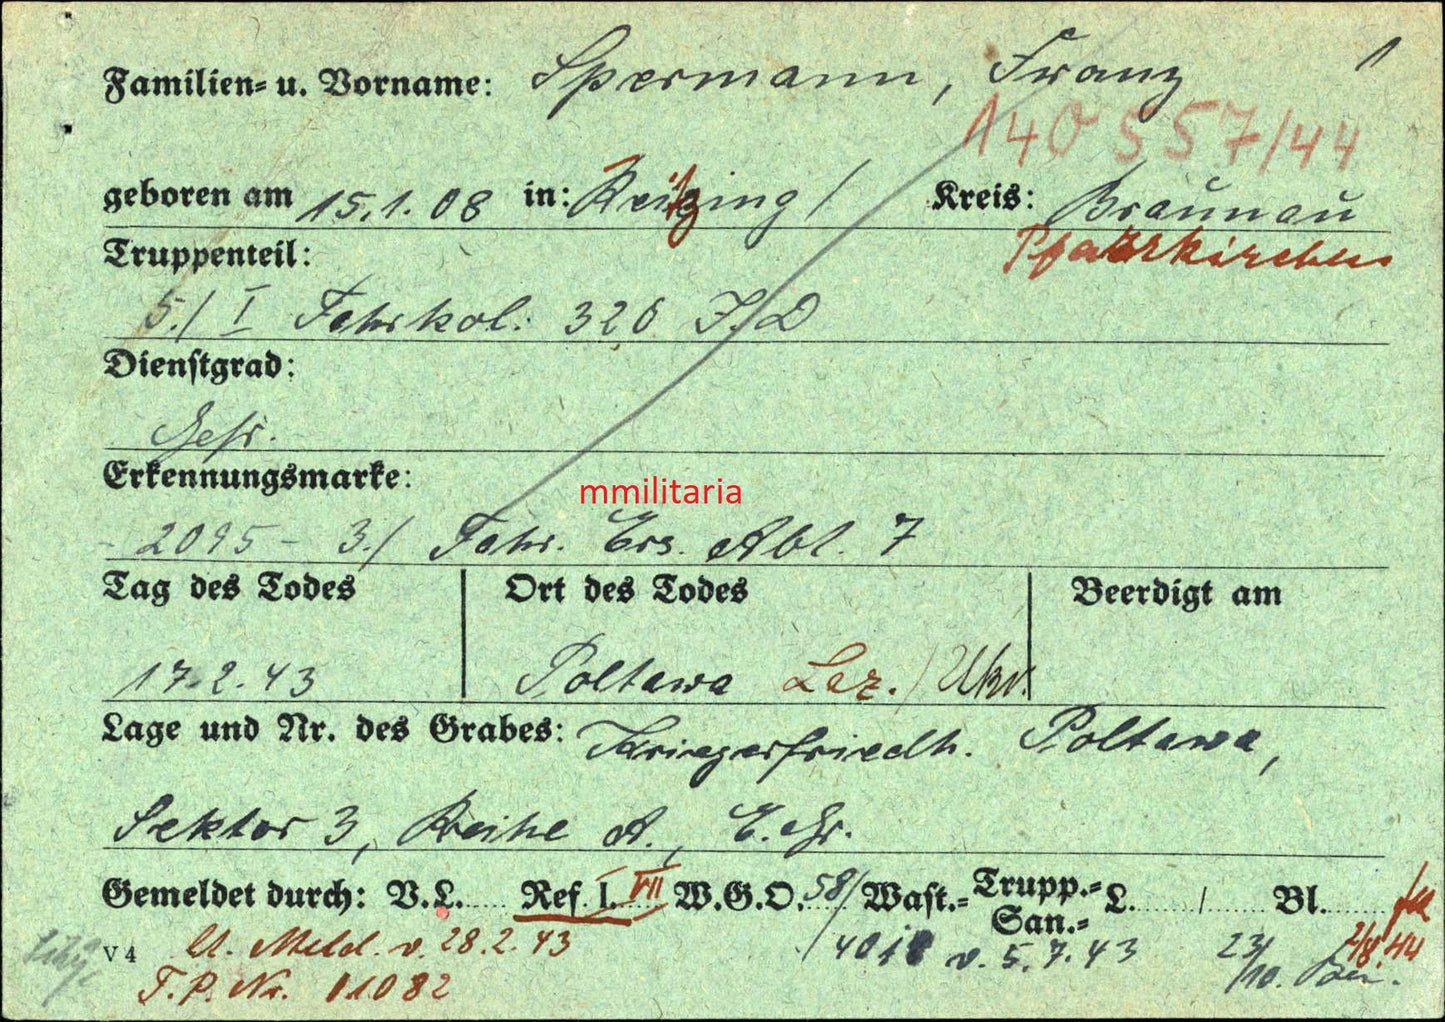 Familien- u. Vorname: Spermann, Franz 1
140 557/44
geboren am 15.1.08 in: Reitzing / Kreis: Braunau
Pfarrkirchen
Truppenteil:
5./ I Fahrkol. 320 I.D
Dienstgrad:
Gefr.
Erkennungsmarke:
- 2095 - 3./ Fahr. Ers. Abt. 7
mmilitaria
Tag des Todes Ort des Todes Beerdigt am
17.2.43 Poltawa Laz. / Ukr.
Lage und Nr. des Grabes: Kriegerfriedh. Poltawa,
Sektor 3, Reihe A., E. Gr.
Gemeldet durch: V.L. Ref. I. VII W.G.O. 58/ Wast.- Trupp.- San.- L. / Bl.
V 4 lt. Meld. v. 28.2.43 v. 5.7.43 23/10. 2/8.44
F.P. Nr. 11082